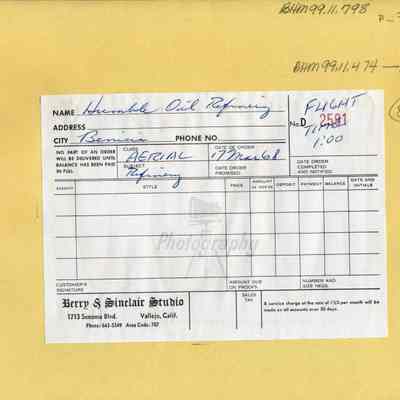 BHM99.11.798
P_
BHM99.11.474 —
NAME Humble Oil Refinery
FLIGHT
No. D 2591
TIME
1:00
ADDRESS
CITY Benicia PHONE NO.
NO PART OF AN ORDER WILL BE DELIVERED UNTIL BALANCE HAS BEEN PAID IN FULL
CLASS AERIAL
DATE OF ORDER 17 Mar 68
DATE ORDER COMPLETED AND NOTIFIED
SUBJECT Refinery
DATE ORDER PROMISED
AMOUNT STYLE PRICE AMOUNT DEPOSIT PAYMENT BALANCE DATE AND INITIALS
Photography
CUSTOMER'S SIGNATURE
AMOUNT DUE ON PROOFS
NUMBER AND SIZE NEGS.
Berry & Sinclair Studio
1713 Sonoma Blvd. Vallejo, Calif.
Phone: 643-5349 Area Code: 707
SALES TAX
A service charge at the rate of 1½% per month will be made on all accounts over 30 days.